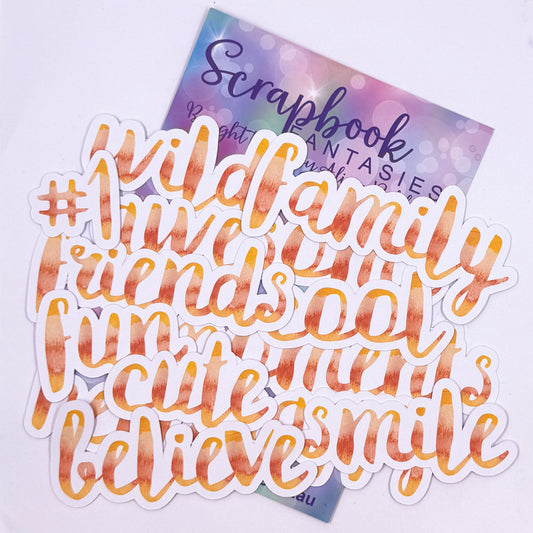 Scrapbook
FANTASIES
wild
family
#1
friends
cool
fun
moments
cute
smile
believe